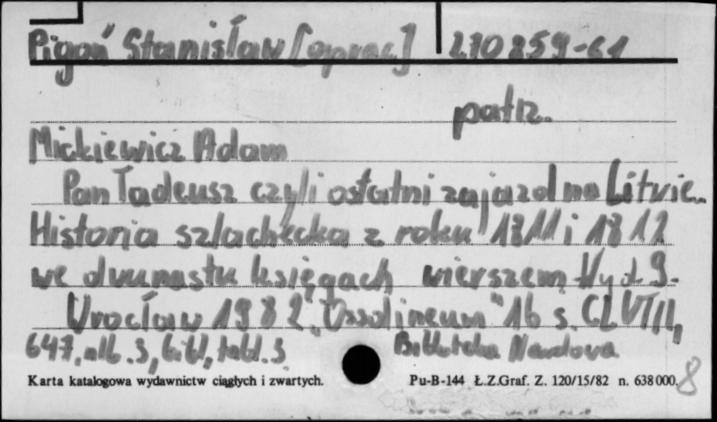 Pigoń Stanisław [oprac] 270859-61
patrz.
Mickiewicz Adam
Pan Tadeusz czyli ostatni zajazd na Litwie.
Historia szlachecka z roku 1811 i 1812
we dwunastu księgach wierszem Wyd 9.
Wrocław 1982 "Ossolineum" 16 s. CLVIII,
647, nlb. 3, bibl, tabl. 3 Biblioteka Narodowa
Karta katalogowa wydawnictw ciągłych i zwartych. Pu-B-144 Ł.Z.Graf. Z. 120/15/82 n. 638 000. 8